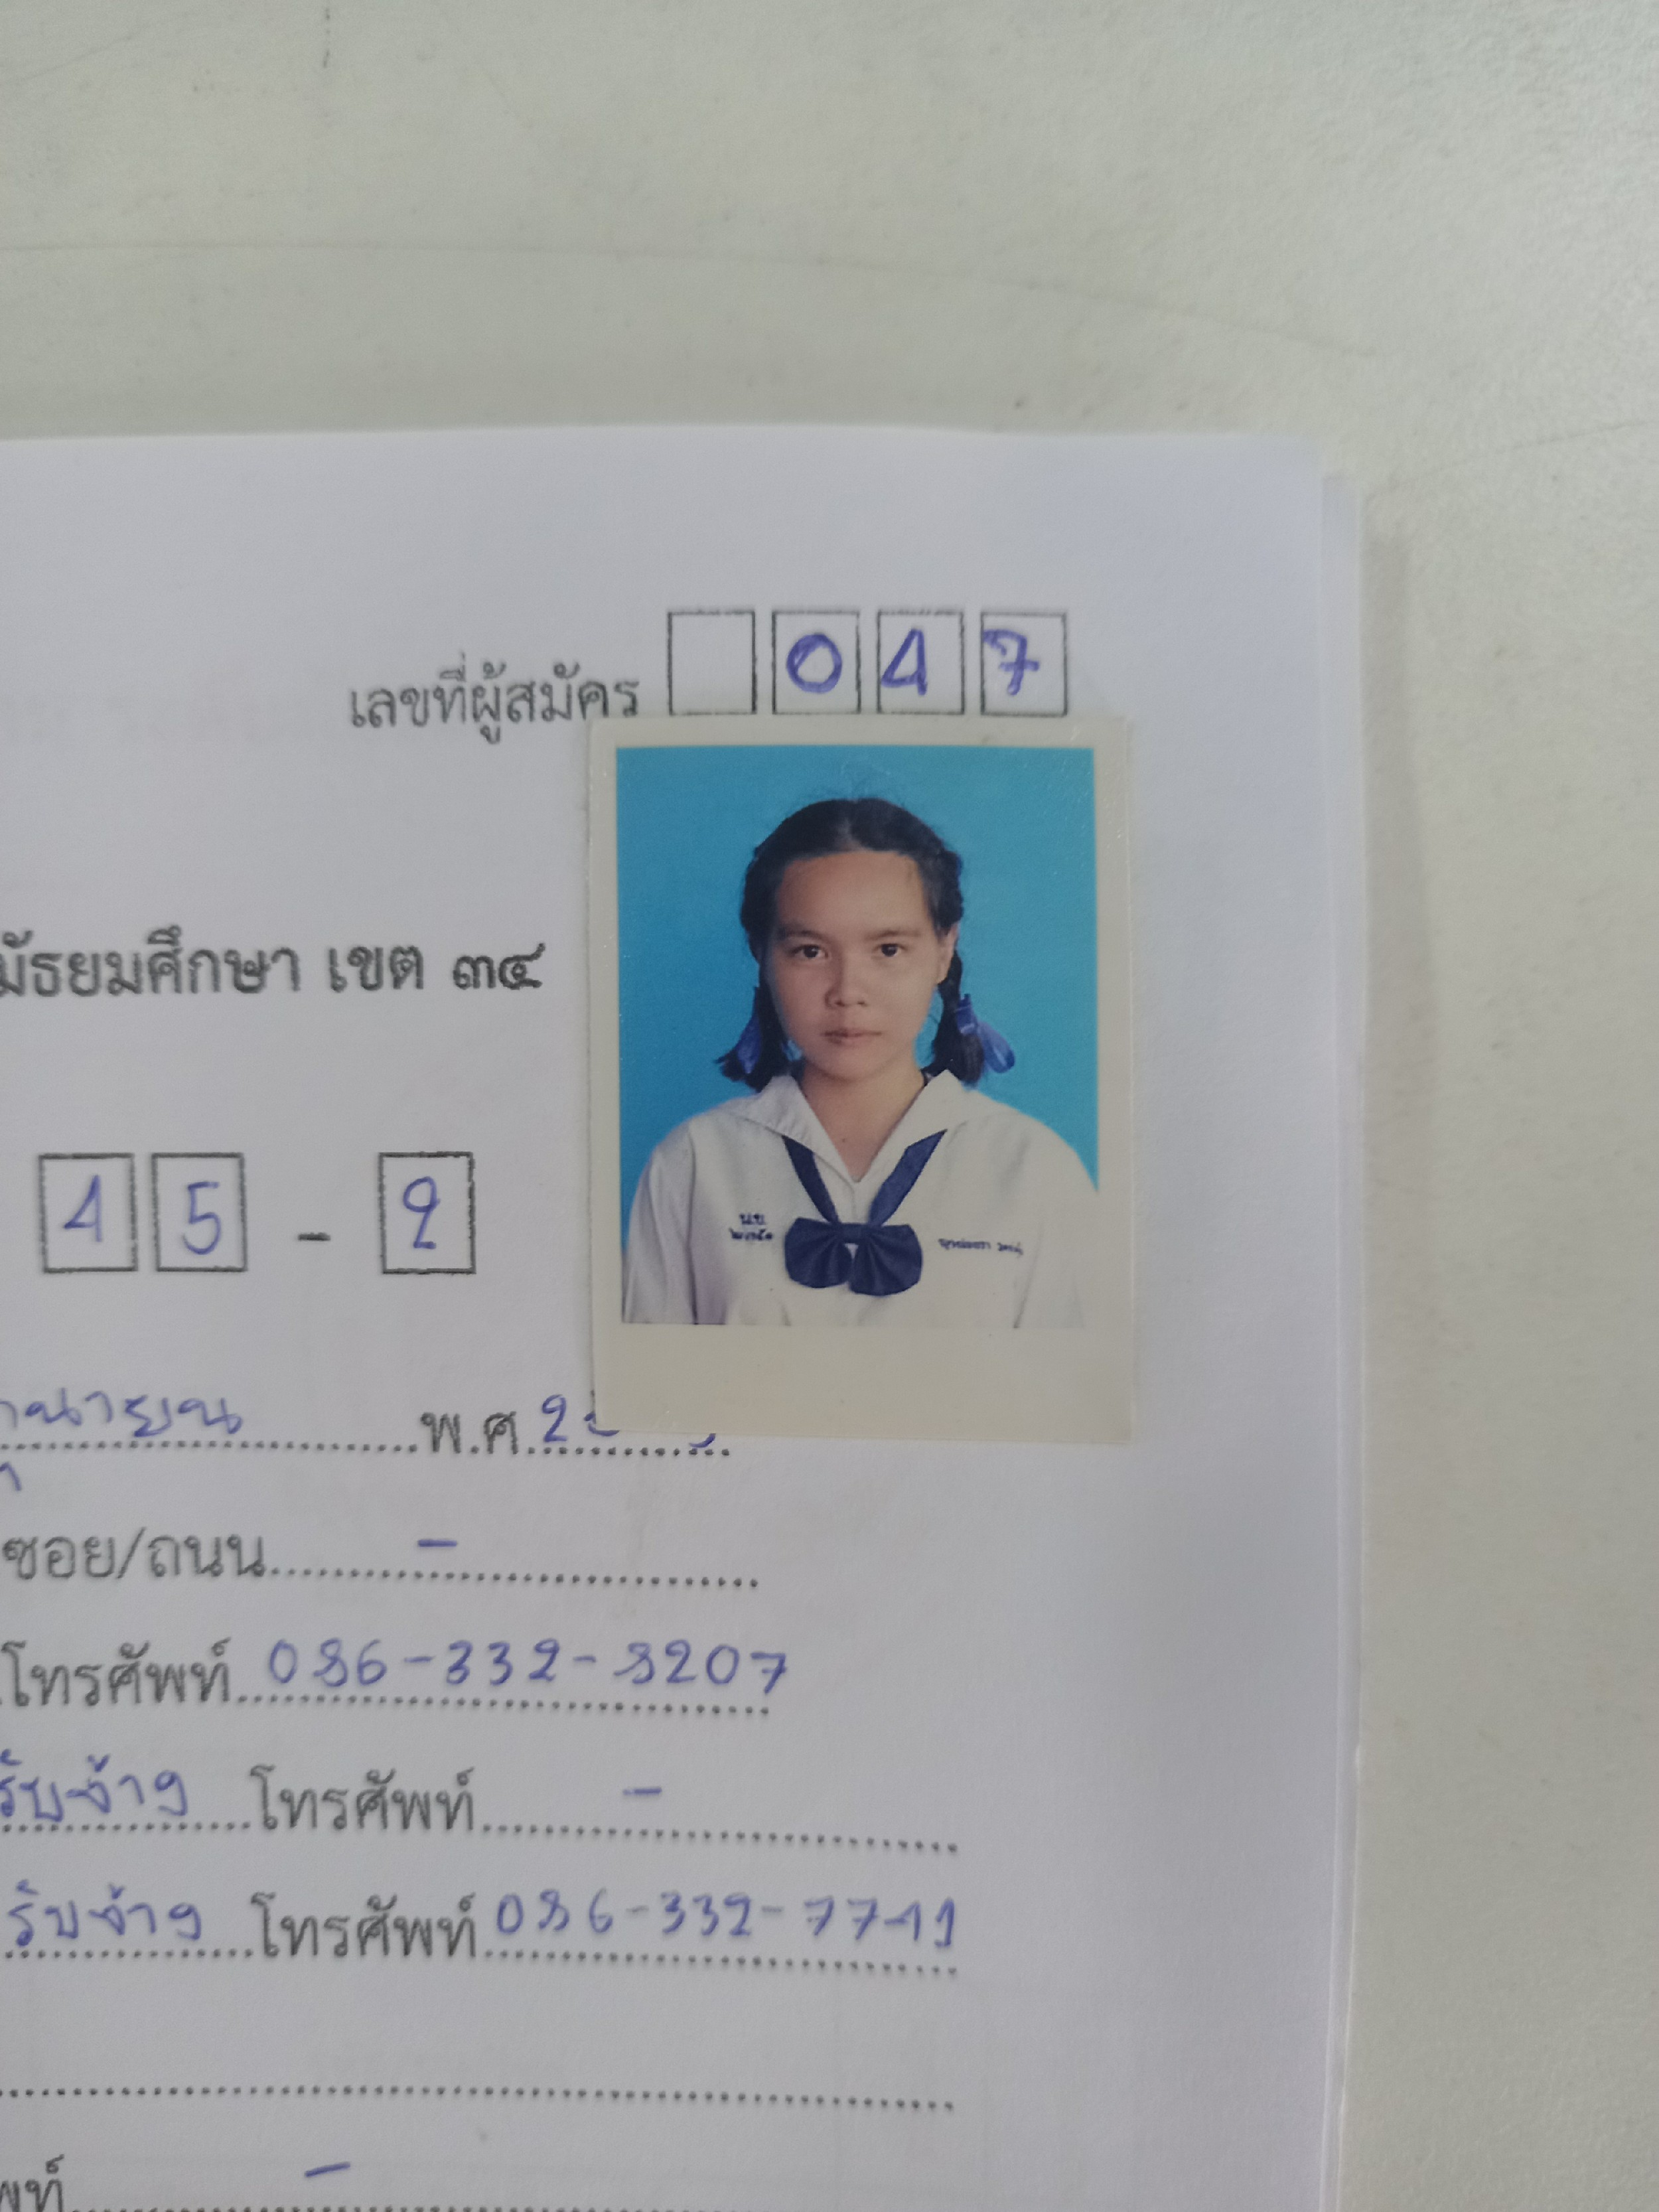 เลขที่ผู้สมัคร 0 4 7
มัธยมศึกษา เขต ๓๔
4 5 - 2
น.ข.
พ.ศ.
ซอย/ถนน -
โทรศัพท์ 086-332-8207
รับจ้าง โทรศัพท์ -
รับจ้าง โทรศัพท์ 086-332-7711
-